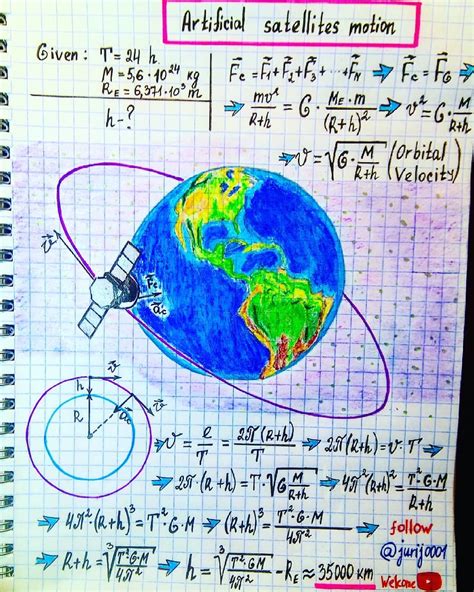 Artificial satellites motion
Given: T=24 h
M=5,6·10²⁴ kg
R_E=6,371·10³ m
h-?
F⃗c=F⃗₁+F⃗₂+F⃗₃+...+F⃗_N ⇒ F⃗c=F⃗_G ⇒
⇒ mv²/(R+h) = G·(M_E·m)/(R+h)² ⇒ v²=G·M/(R+h)
⇒ v=√(G·M/(R+h)) (Orbital Velocity)
v⃗
F⃗c
a⃗c
v⃗
h
R
a⃗c
v⃗
v=ℓ/T=2π(R+h)/T ⇒ 2π(R+h)=v·T ⇒
⇒ 2π·(R+h)=T·√(G M/(R+h)) ⇒ 4π²(R+h)²=T²·G·M/(R+h)
⇒ 4π²·(R+h)³=T²·G·M ⇒ (R+h)³=T²·G·M/4π² ⇒
⇒ R+h=∛(T²·G·M/4π²) ⇒ h=∛(T²·GM/4π²)-R_E≈35000 km
follow
@jurij0001
Welcome